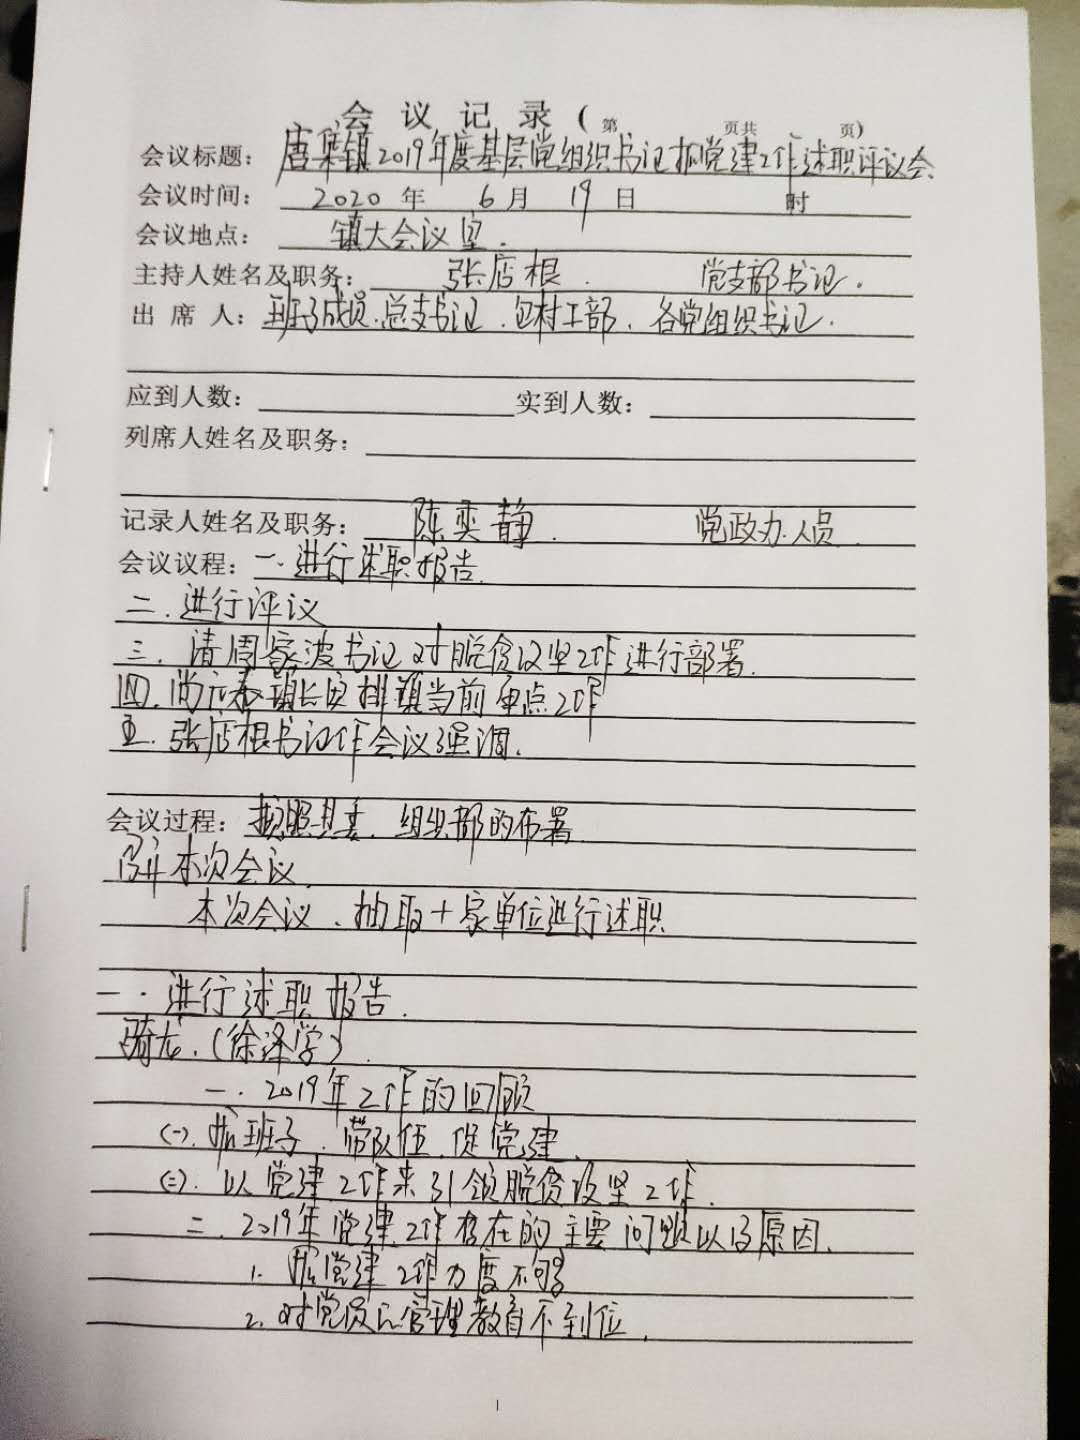 会 议 记 录 （ 第 页共 页）
会议标题： 唐集镇2019年度基层党组织书记抓党建工作述职评议会
会议时间： 2020 年 6 月 19 日 时
会议地点： 镇大会议室.
主持人姓名及职务： 张店根. 党支部书记.
出 席 人： 班子成员.总支书记.包村工部.各党组织书记.
应到人数： 实到人数：
列席人姓名及职务：
记录人姓名及职务： 陈奕静. 党政办人员.
会议议程： 一.进行述职报告.
二.进行评议
三.请周家波书记对脱贫攻坚工作进行部署.
四. 镇长安排镇当前重点工作
五.张店根书记作会议强调.
会议过程： 按照县委.组织部的布署
召开本次会议.
本次会议.抽取十家单位进行述职
一.进行述职报告.
骑龙.(徐泽学).
一.2019年工作的回顾
(一).抓班子.带队伍.促党建.
(二).以党建工作来引领脱贫攻坚工作.
二.2019年党建工作存在的主要问题以及原因.
1.抓党建工作力度不够
2.对党员 管理教育不到位.
1